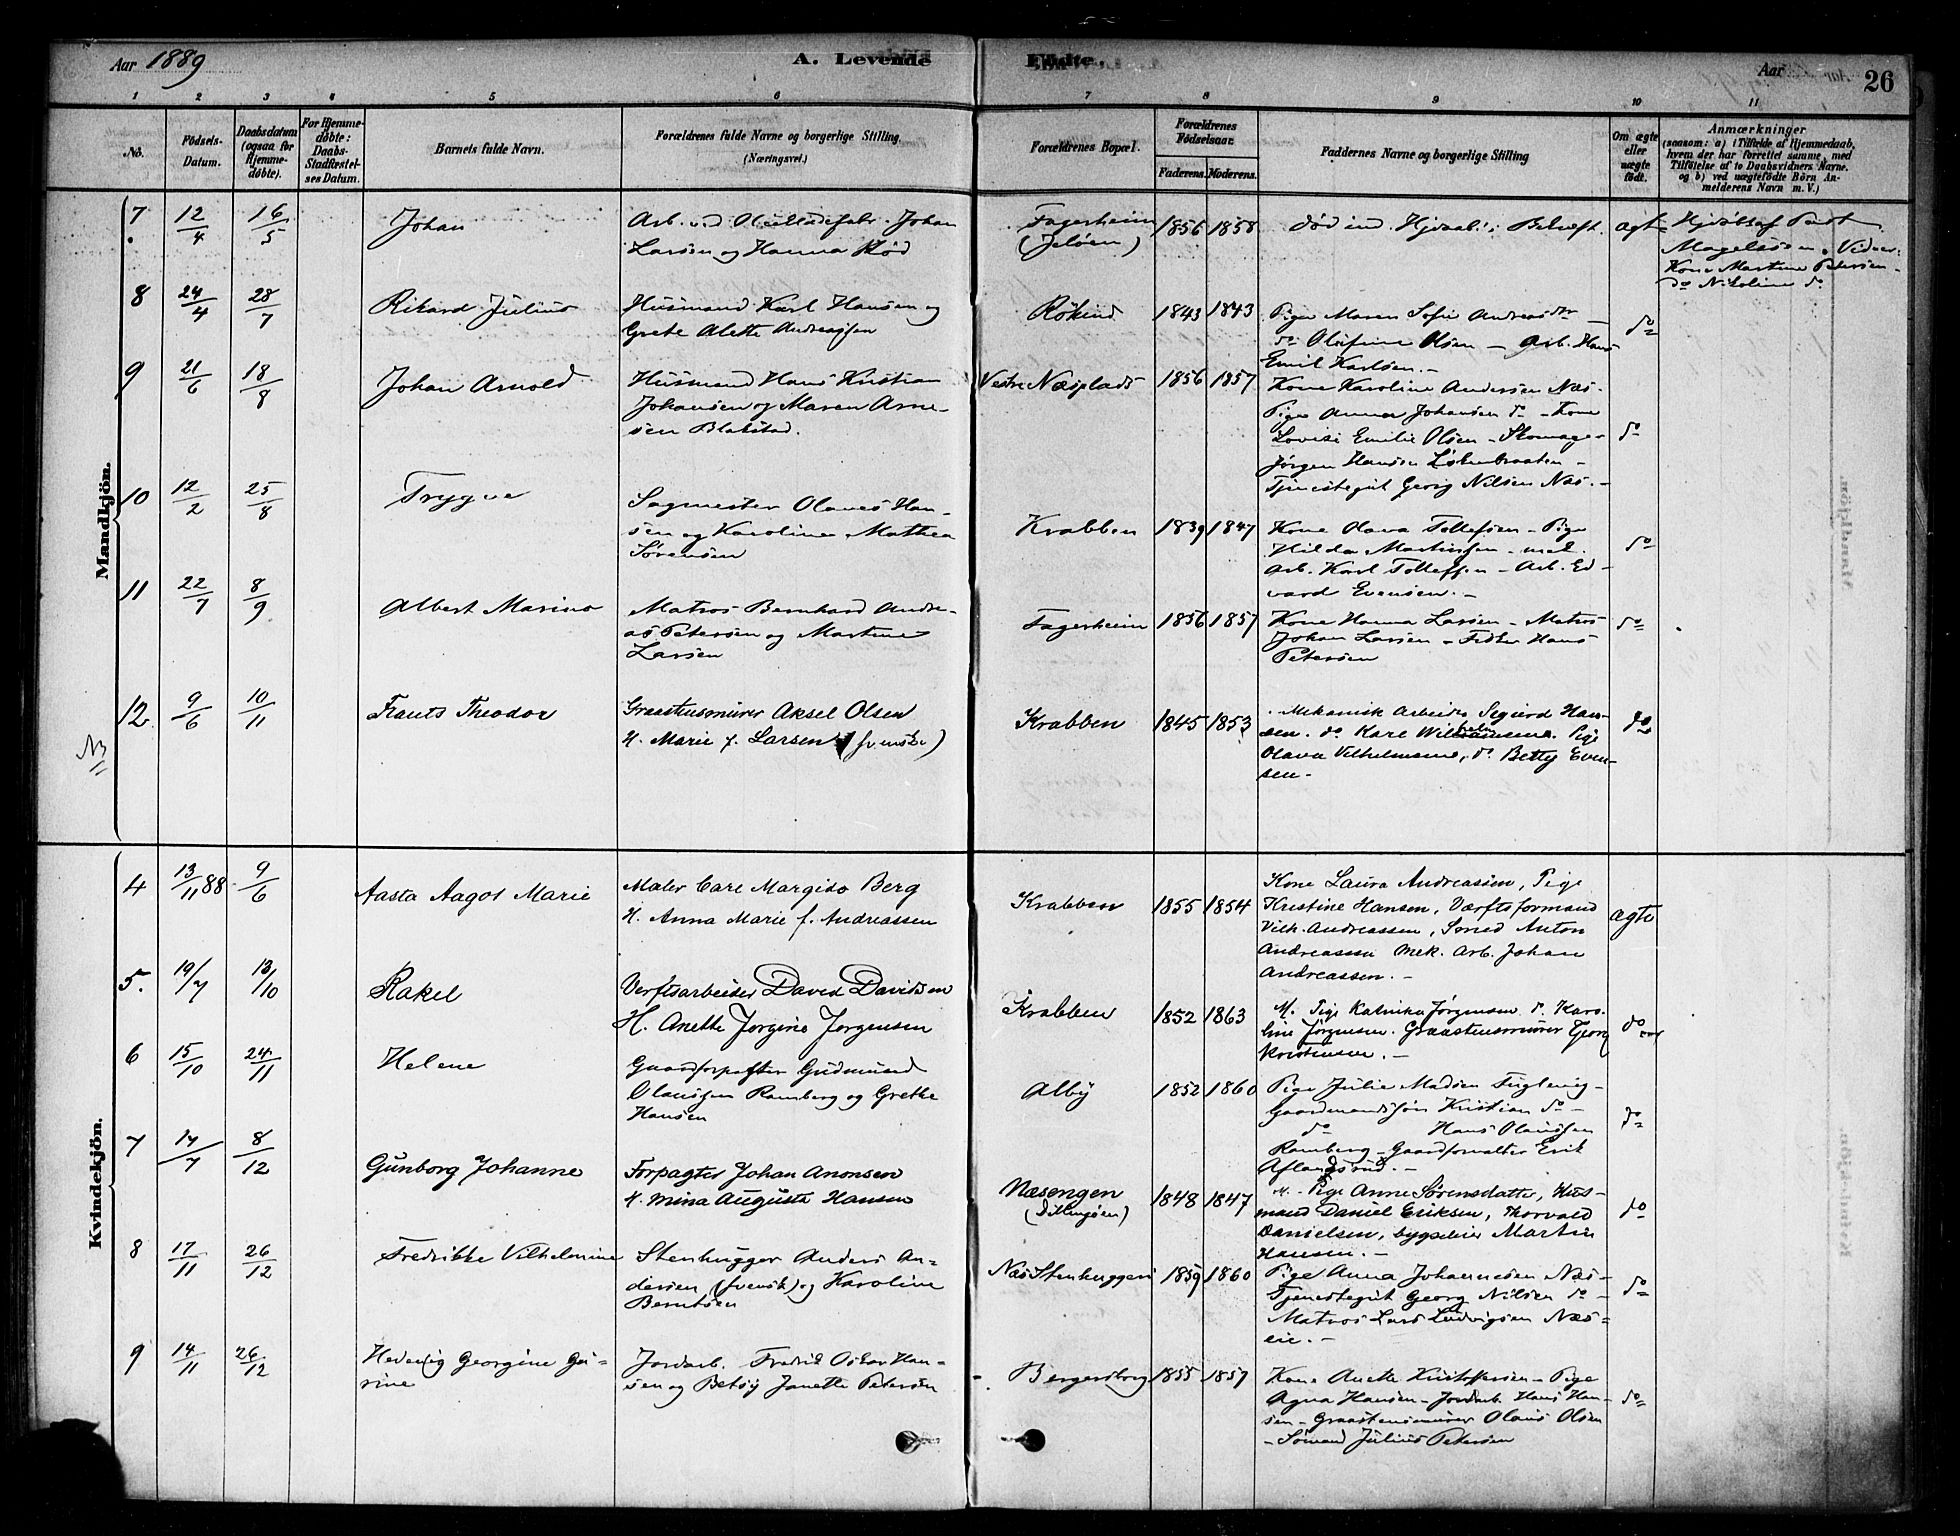 Aar 1889
A. Levende Födte.
Aar
26
1 2 3 4 5 6 7 8 9 10 11
No.
Födsels-Datum.
Daabsdatum (ogsaa for Hjemme-döbte).
For Hjemme-döbte: Daabs-Stadfæstel-ses Datum.
Barnets fulde Navn.
Forældrenes fulde Navne og borgerlige Stilling.
(Næringsvei.)
Forældrenes Bopæl.
Forældrenes Födselsaar.
Faderens. Moderens.
Faddernes Navne og borgerlige Stilling
Om ægte eller uægte födt.
Anmærkninger
(saasom: a) i Tilfælde af Hjemmedaab, hvem der har forrettet samme, med Tilföielse af to Daabsvidners Navne. og b) ved uægtefödte Börn An-melderens Navn m. V.)
Mandkjön.
7. 12/4 16/5 Johan
Arb. ved Johan
Larsen og Hanna
Fagerheim
(Jeløen)
1856 1858
død ind.
ægte
Magelssen. Vidner:
Kone Martine Petersen
do Nikoline do
8 24/4 28/7 Rikard Julius
Husmand Karl Hansen og
Grete Alette Andreassen
Rökind 1843 1843
Pige Maren Sofie Andreasdtr
do Olefine Olsen – Arb. Hans
Emil Karlsen. –
do
9 21/6 18/8 Johan Arnold
Husmand Hans Kristian
Johansen og Maren Arne-
sen Blakstad.
Vestre Næsplads 1856 1857
Kone Karoline Andersen Næs-
Pige Anna Johansen do – Kone
Lovise Emilie Olsen – Skomager
Jörgen Hansen
Tjenestegut Georg Nilsen Næs. –
do
10 12/2 25/8 Trygve
Sagmester Olaves Han-
sen og Karoline Mathea
Sörensen
Krabben 1839 1847
Kone Olava Tollefsen – Pige
Hilda Martinsen – mek.
Arb. Karl Tollefsen – Arb. Ed-
vard Evensen. –
do
11 22/7 8/9 Albert Marino
Matros Bernhard Andre-
as Petersen og Martine
Larsen
Fagerheim 1856 1857
Kone Hanna Larsen – Matros
Johan Larsen – Fisker Hans
Petersen
do
12 9/6 10/11 Frants Theodor
Graastensmurer Aksel Olsen
H. Marie f. Larsen (svenske)
Krabben 1845 1853
Mekanisk Arbeider Sigurd Han-
sen. do Karl Wilhelmsen. Pige
Olava Vilhelmsen, do Betty Even-
sen –
do
NB
Kvindekjön.
4 13/11 88 9/6 Aasta Aagot Marie
Maler Carl Margido Berg
H. Anna Marie f. Andreassen
Krabben 1855 1854
Kone Laura Andreassen, Pige
Kristine Hansen, Værftsformand
Vilh. Andreassen, Smed Anton
Andreassen Mek. Arb. Johan
Andreassen. –
ægte
5. 19/7 13/10 Rakel
Verftsarbeider David Davidsen
H. Anette Jorgine Jorgensen
Krabben 1852 1863
M. Pige Katrika Jörgensen do. Karo-
line Jörgensen. Graastensmurer Georg
Kristensen. –
do
6 15/10 24/11 Helene
Gaardforpagter Gudmund
Olaussen Ramberg og Grethe
Hansen
Alby 1852 1860
Pige Julie Madsen Fuglevig –
Gaardmandssön Kristian do –
do Hans Olaussen
Ramberg – Gaardforvalter Erik
Aflandsrud. –
do
7 17/7 8/12 Gunborg Johanne
Forpagter Johan Anonsen
H. Mina Augusta Hansen
Næsengen
(Dillingöen)
1848 1847
M. Pige Anne Sörensdatter, Hus-
mand Daniel Eriksen, Thorvald
Danielsen, bygseleier Martin
Hansen. –
do
8 17/11 26/12 Fredrikke Vilhelmine
Stenhugger Anders An-
dersen (svensk) og Karoline
Berntsen
Næs Stenhuggeri 1859 1860
Pige Anna Johannesen Næs –
Tjenestegut Georg Nilsen do –
Matros Lars Ludvigsen Næs-
eie. –
do
9 14/11 26/12 Hedevig Georgine Gu-
rine
Jordarb. Fredrik Oskar Han-
sen og Betsy Janette Petersen
Bergersborg 1855 1857
Kone Anette Kristoffersen – Pige
Agna Hansen – Jordarb. Hans Han-
sen – Graastensmurer Olaus Olsen
– Sömand Julius Petersen
do